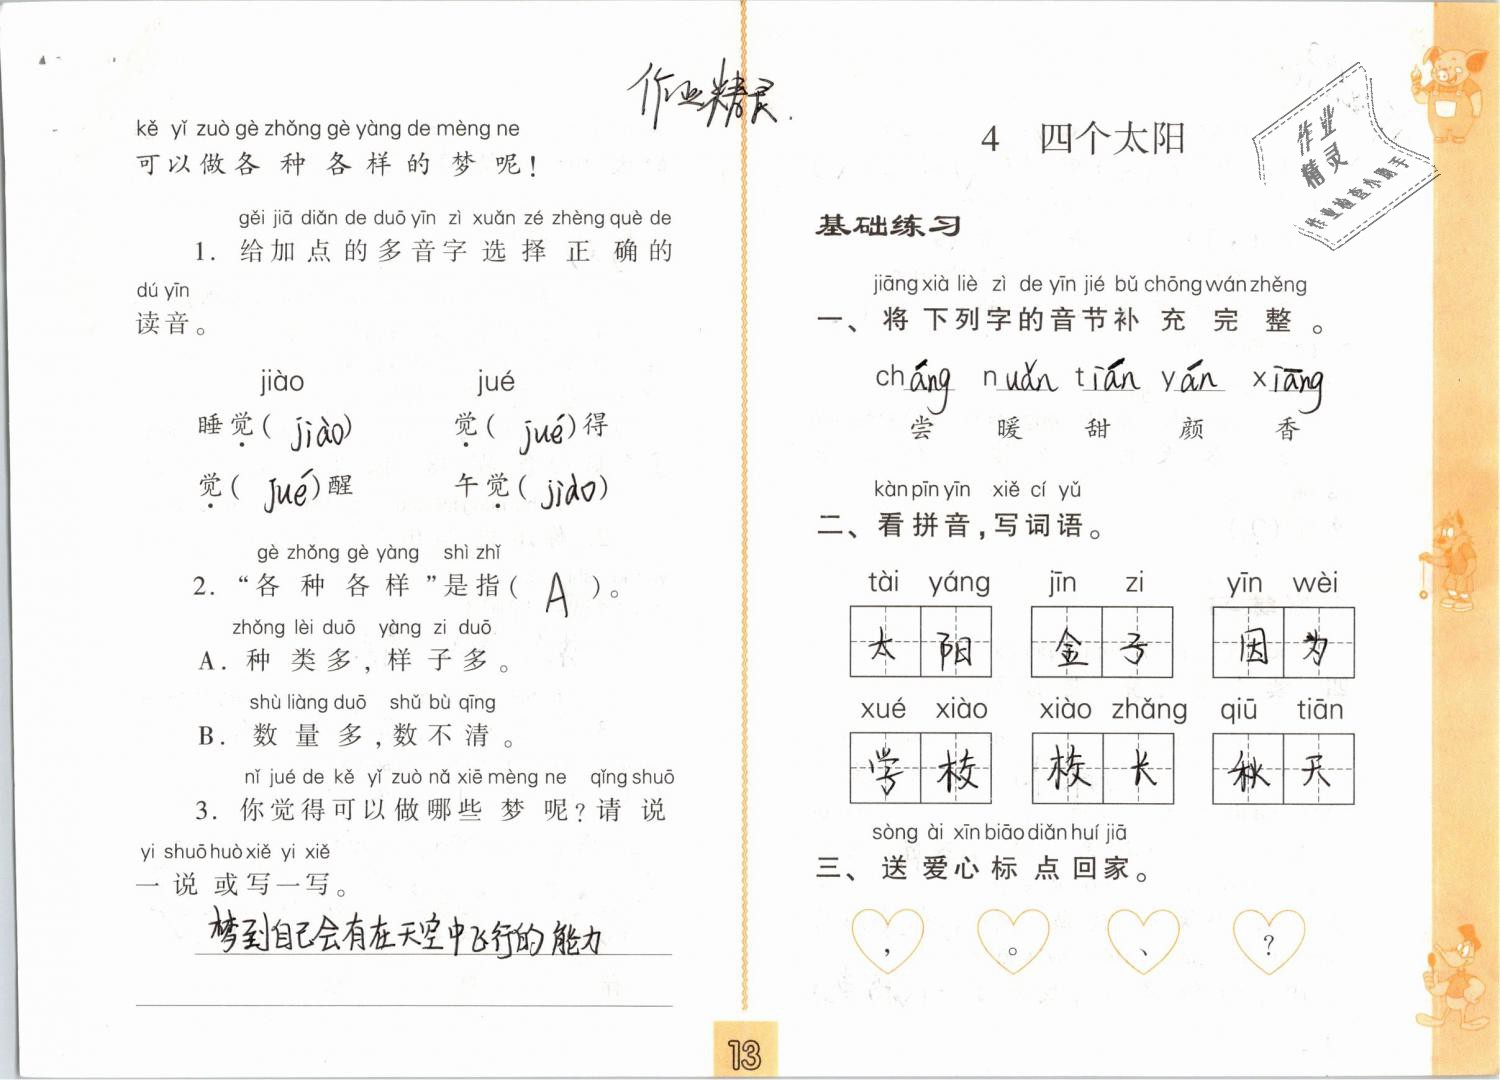 作业精灵.
kě yǐ zuò gè zhǒng gè yàng de mèng ne
可以做各种各样的梦呢!
gěi jiā diǎn de duō yīn zì xuǎn zé zhèng què de
1. 给加点的多音字选择正确的
dú yīn
读音。
jiào jué
睡觉( jiào) 觉( jué)得
觉( jué)醒 午觉( jiào)
gè zhǒng gè yàng shì zhǐ
2. “各种各样”是指( A )。
zhǒng lèi duō yàng zi duō
A. 种类多,样子多。
shù liàng duō shǔ bù qīng
B. 数量多,数不清。
nǐ jué de kě yǐ zuò nǎ xiē mèng ne qǐng shuō
3. 你觉得可以做哪些梦呢?请说
yi shuō huò xiě yi xiě
一说或写一写。
梦到自己会有在天空中飞行的能力
13
4 四个太阳
作业
精灵
作业检查小助手
基础练习
jiāng xià liè zì de yīn jié bǔ chōng wán zhěng
一、将下列字的音节补充完整。
cháng nuǎn tián yán xiāng
尝 暖 甜 颜 香
kàn pīn yīn xiě cí yǔ
二、看拼音,写词语。
tài yáng jīn zi yīn wèi
太阳 金子 因为
xué xiào xiào zhǎng qiū tiān
学校 校长 秋天
sòng ài xīn biāo diǎn huí jiā
三、送爱心标点回家。
, 。 、 ?